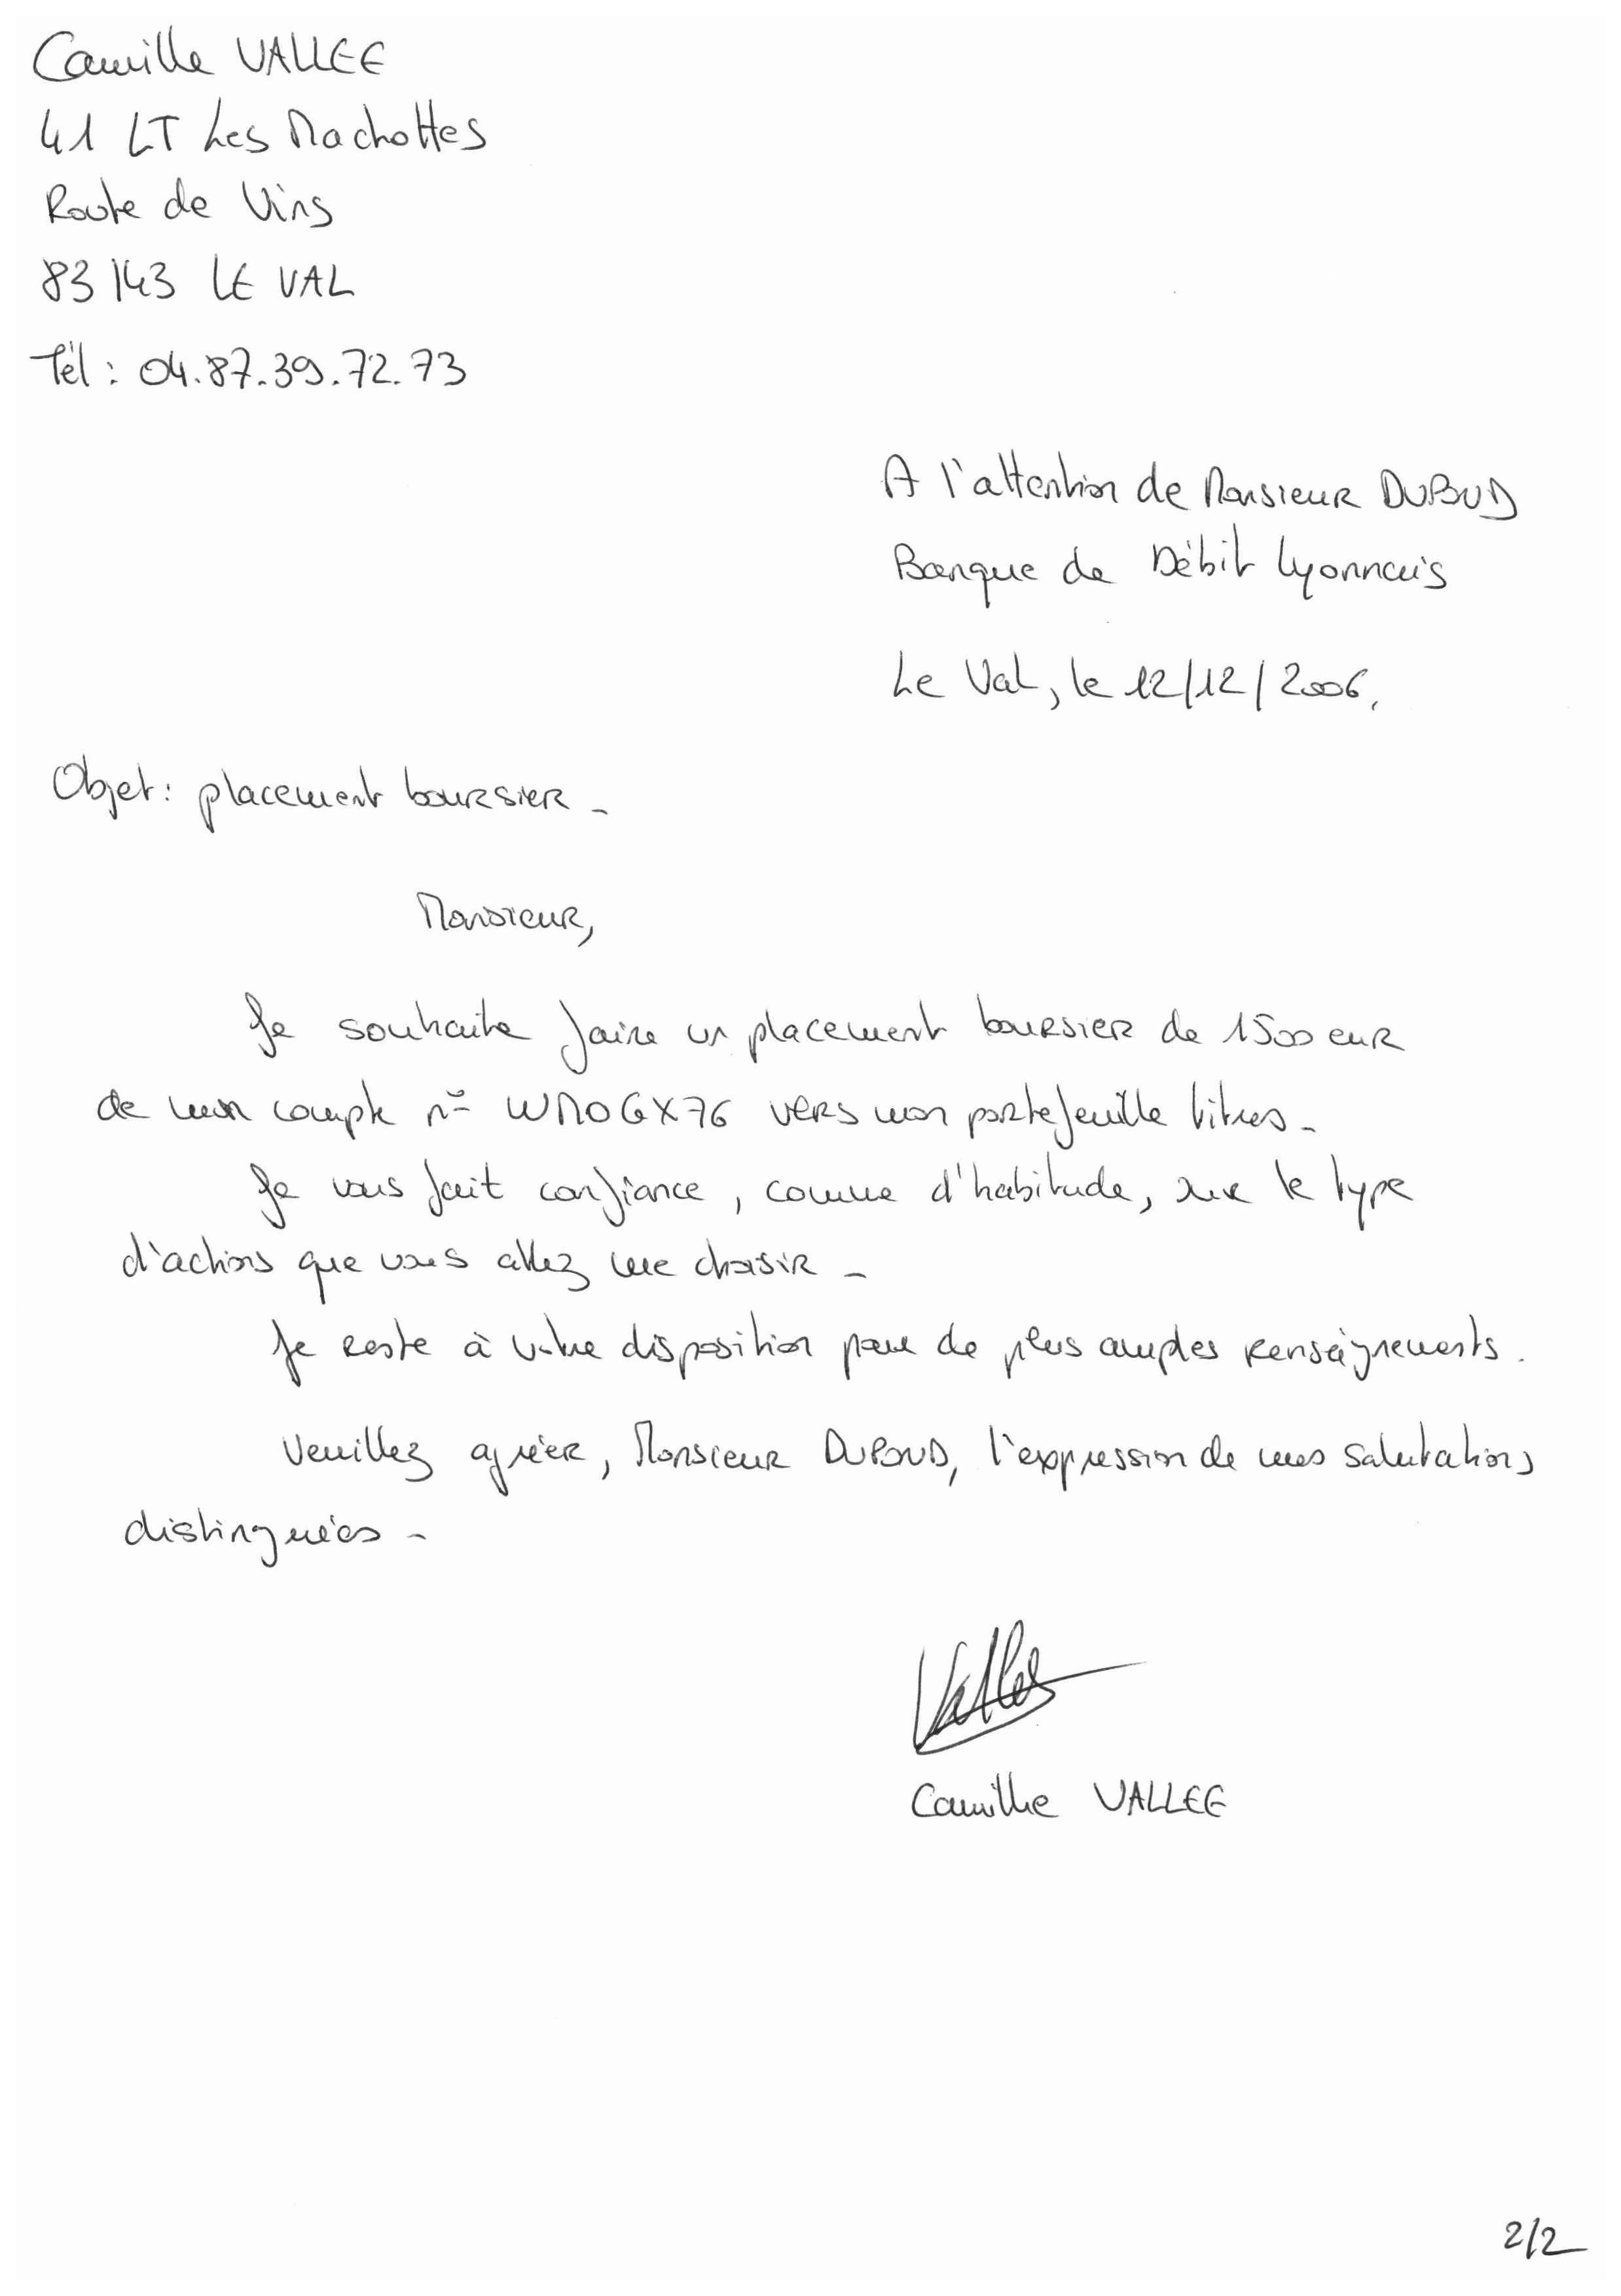 Camille VALLEE
41 LT Les Machottes
Route de Vins
83143 LE VAL
Tél : 04.87.39.72.73
A l'attention de Monsieur DUBUD
Banque de Débit Lyonnais
Le Val, le 12/12/2006,
Objet : placement boursier -
Monsieur,
Je souhaite faire un placement boursier de 1500 eur
de mon compte n° WMOGX76 vers mon portefeuille titres -
Je vous fait confiance, comme d'habitude, sur le type
d'actions que vous allez me choisir -
Je reste à votre disposition pour de plus amples renseignements.
Veuillez agréer, Monsieur DUBUD, l'expression de mes salutations
distinguées -
Vallee
Camille VALLEE
2/2